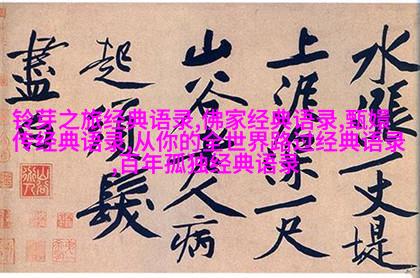 水漲一丈堤
上泥深一尺
山谷老人病
起鬚髮
盡
铃芽之旅经典语录,佛家经典语录,甄嬛
传经典语录,从你的全世界路过经典语录
,百年孤独经典语录